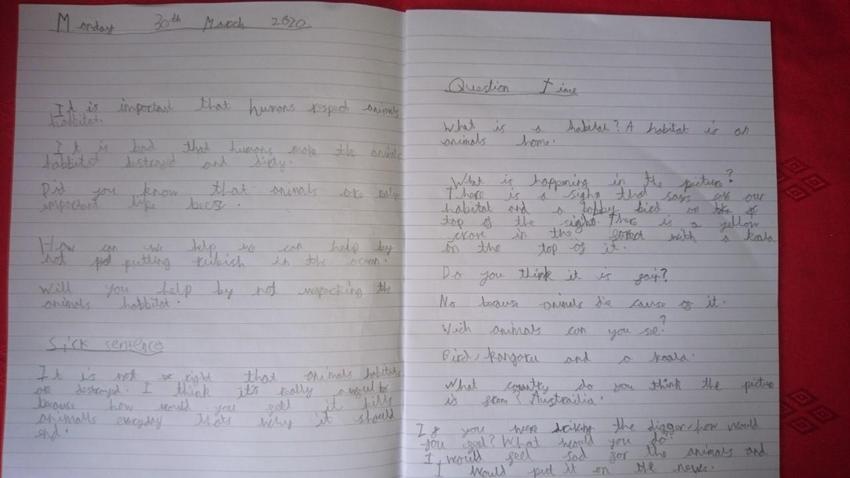 Monday 30th March 2020
It is important that humans respect animals
habbitat.
It is bad that humans make the animals
habbitat destroyed and dirty.
Did you know that animals are
important like bees.
How can we help we can help by
not putting rubish in the ocean.
Will you help by not the
animals habbitat.
Sick sentence
It is not right that animals habitats
are destroyed. I think it's really
because how would you feel it kills
animalls everyday thats why it should
end.
Question time
What is a habitat? A habitat is an
animals home.
What is happening in the picture?
There is a sighn that says our
habitat and a bird on
top of the sighn. There is a yellow
in the with a koala
on the top of it.
Do you think it is fair?
No because animals die cause of it.
Wich animals can you see?
Bird, kangaru and a koala.
What country do you think the picture
is from? Austrailia.
If you were driking the digger how would
you feel? What would you do?
I would feel sad for the animals and
I would put it on the news.